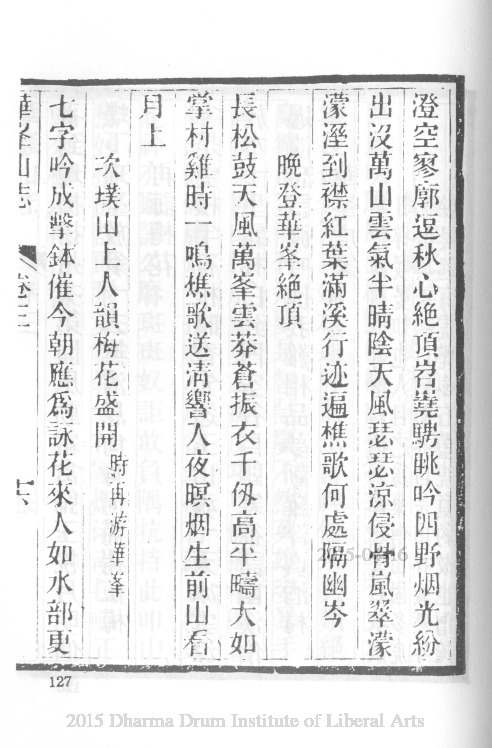 澄空寥廓逗秋心絶頂岧嶤騁眺吟四野烟光紛
出没萬山雲氣半晴陰天風瑟瑟涼侵骨嵐翠濛
濛溼到襟紅葉滿溪行迹遍樵歌何處隔幽岑
晩登華峯絶頂
長松鼓天風萬峯雲莽蒼振衣千仭高平疇大如
掌村雞時一鳴樵歌送清響入夜暝烟生前山看
月上
次璞山上人韻梅花盛開時再游華峯
七字吟成擊鉢催今朝應爲詠花來人如水部更
華峯山志 卷三 十六
127
2015 Dharma Drum Institute of Liberal Arts